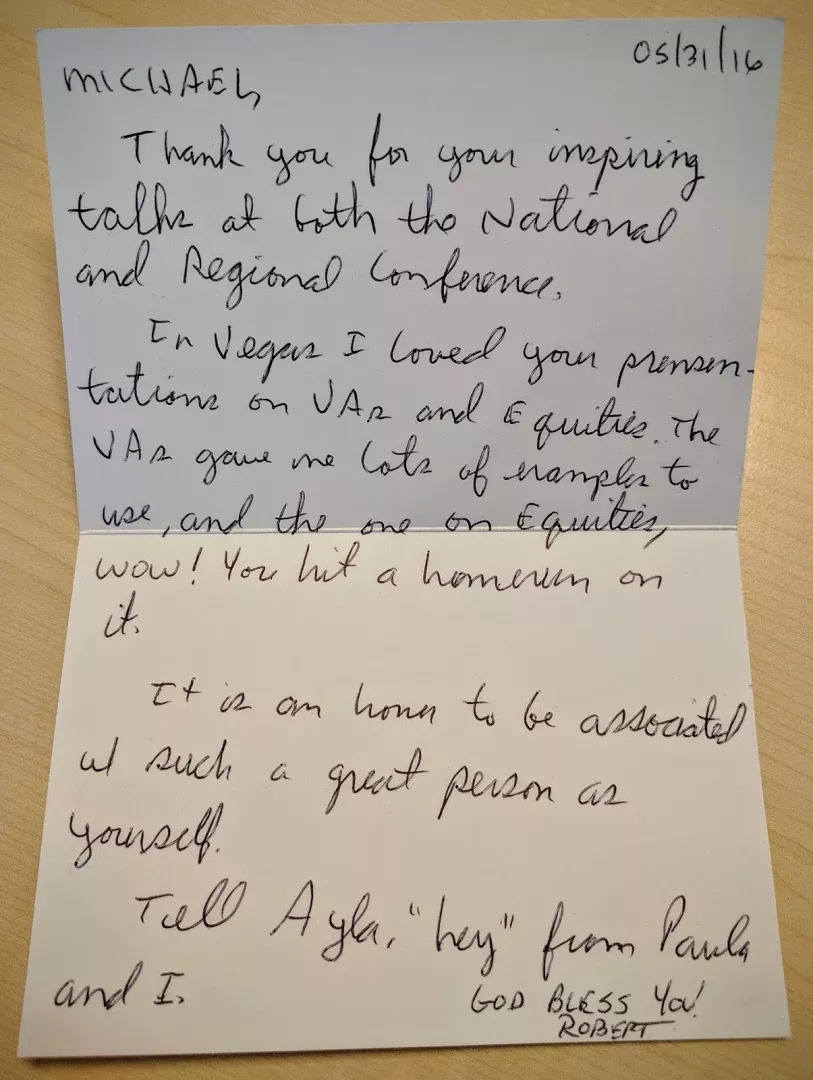 05/31/16
MICHAEL,
Thank you for your inspiring
talks at both the National
and Regional Conference.
In Vegas I loved your prensen-
tations on VAs and Equities. The
VAs gave me lots of examples to
use, and the one on Equities,
wow! You hit a homerun on
it.
It is an honor to be associated
w/ such a great person as
yourself.
Tell Ayla, "hey" from Paula
and I.
GOD BLESS YOU!
ROBERT